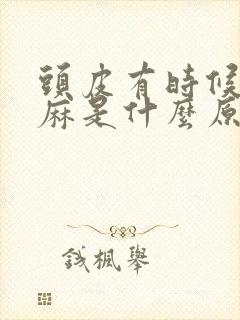 頭皮有時候
麻是什麼原
鈛楓舉